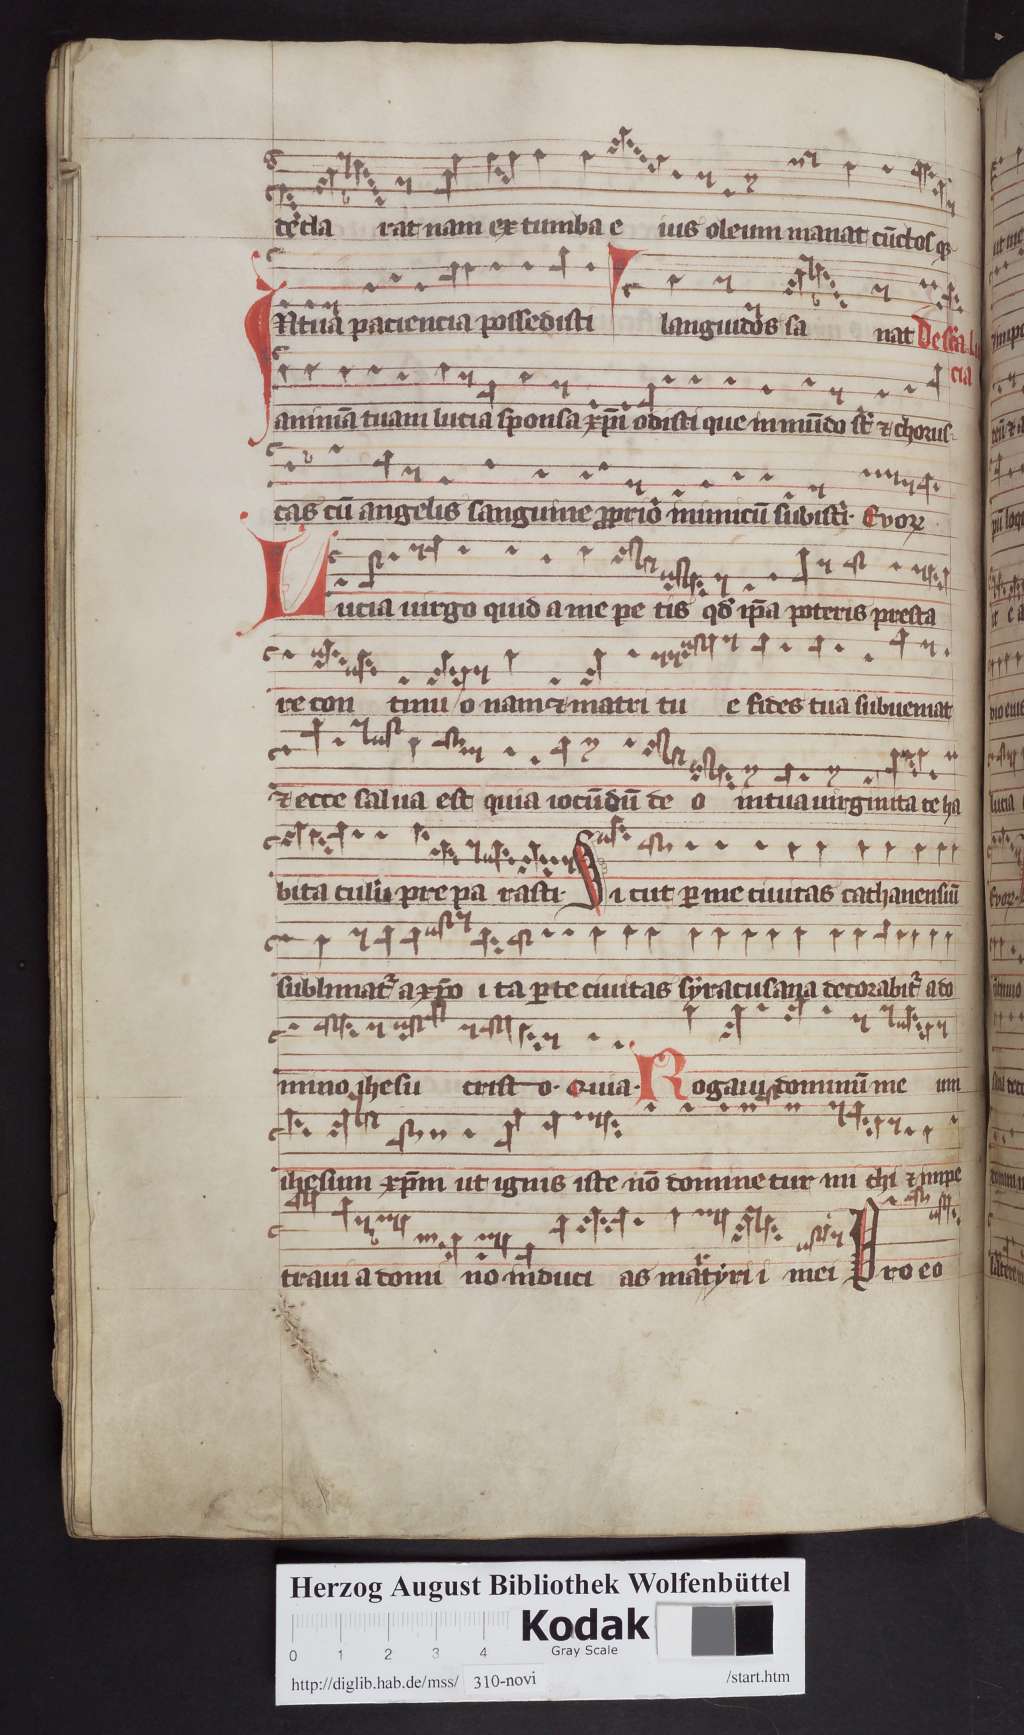 te cla rat nam ex tumba e ius oleum manat cūctos q̄
In tua paciencia possedisti languidos sa nat De scā Lu
cia
animā tuam lucia sponsa xp̄i odisti que in mūdo st̄ & chorus
cas cū angelis sanguine p̄prio inimicū subisti. Evor
Lucia uirgo quid a me pe tis qd̄ ip̄a poteris presta
re con tinu o nam & matri tu e fides tua subueniat
& ecce salua est quia iocūdū de o in tua uirginita te ha
bita culū pre pa rasti. Si cut per me ciuitas cathanensiū
sublimat' a xp̄o i ta per te ciuitas syracusana decorabit' a do
mino ihesu crist o. Quia. Rogaui dominū me um
ihesum xp̄m ut ignis iste nō domine tur mi chi & impe
traui a domi no induci as martyri i mei Pro eo
Herzog August Bibliothek Wolfenbüttel
Kodak
Gray Scale
0 1 2 3 4
http://diglib.hab.de/mss/ 310-novi /start.htm